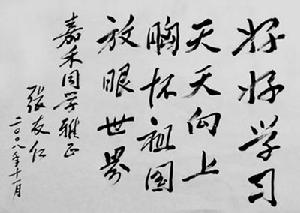 好好学习
天天向上
胸怀祖国
放眼世界
嘉禾同学雅正
张友仁
二〇〇八年十一月